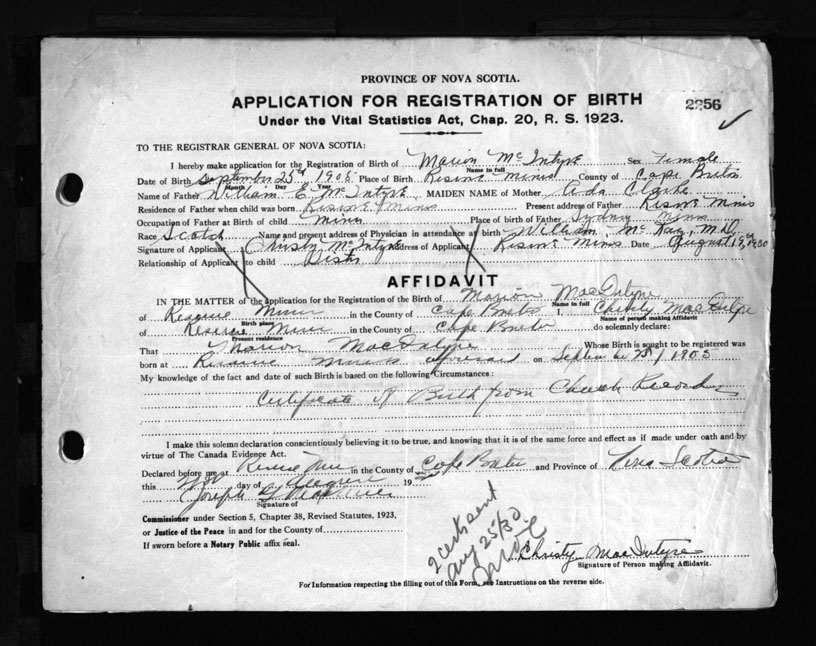 PROVINCE OF NOVA SCOTIA.
APPLICATION FOR REGISTRATION OF BIRTH
2256
Under the Vital Statistics Act, Chap. 20, R. S. 1923.
TO THE REGISTRAR GENERAL OF NOVA SCOTIA:
I hereby make application for the Registration of Birth of Marion McIntyre Sex Female
Name in full
Date of Birth September 25th 1905 Place of Birth Reserve Mines County of Cape Breton
Month Day Year
Name of Father William E. McIntyre MAIDEN NAME of Mother Ada Clarke
Residence of Father when child was born Reserve Mines Present address of Father Reserve Mines
Occupation of Father at Birth of child Miner Place of birth of Father Sydney Mines
Race Scotch Name and present address of Physician in attendance at birth William McKay, M.D.
Signature of Applicant Christy McIntyre Address of Applicant Reserve Mines Date August 19, 1930
Relationship of Applicant to child Sister
AFFIDAVIT
IN THE MATTER of the application for the Registration of the Birth of Marion MacIntyre
Name in full
of Reserve Mines in the County of Cape Breton I, Christy MacIntyre
Birth place Name of person making Affidavit
of Reserve Mines in the County of Cape Breton do solemnly declare:
Present residence
That Marion MacIntyre Whose Birth is sought to be registered was
born at Reserve Mines aforesaid on September 25, 1905
My knowledge of the fact and date of such Birth is based on the following Circumstances:
Certificate of Birth from Church Records
I make this solemn declaration conscientiously believing it to be true, and knowing that it is of the same force and effect as if made under oath and by
virtue of The Canada Evidence Act.
Declared before me at Reserve Mines in the County of Cape Breton and Province of Nova Scotia
this day of August 19
Joseph
Signature of
Commissioner under Section 5, Chapter 38, Revised Statutes, 1923,
or Justice of the Peace in and for the County of
If sworn before a Notary Public affix seal.
2 certs sent
Aug 25/30
Christy MacIntyre
Signature of Person making Affidavit.
For Information respecting the filling out of this Form, see Instructions on the reverse side.